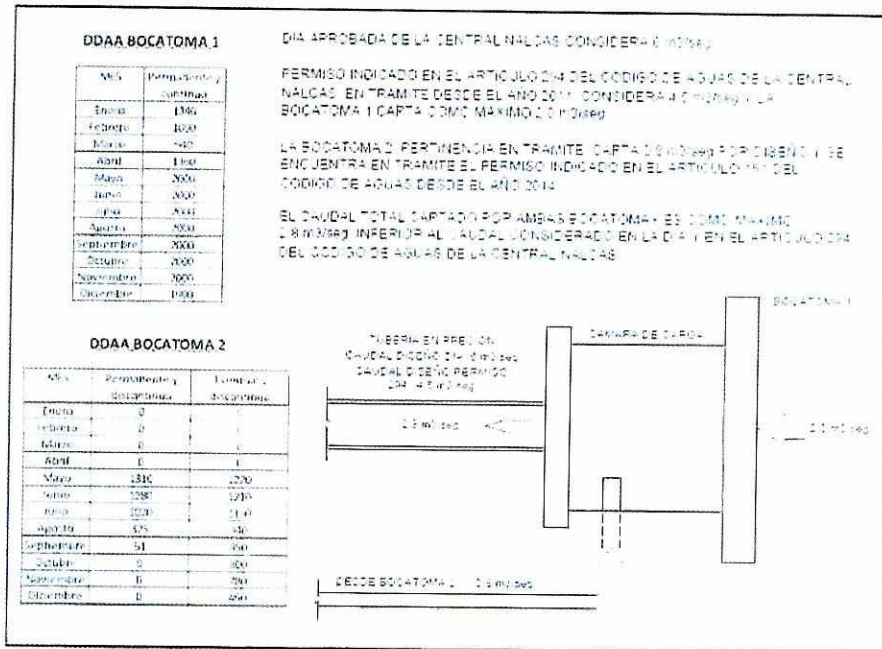 DDAA BOCATOMA 1
MES Permanente y continua
Enero 1346
Febrero 1000
Marzo 940
Abril 1360
Mayo 2000
Junio 2000
Julio 2000
Agosto 2000
Septiembre 2000
Octubre 2000
Noviembre 2000
Diciembre 1900
DIA APROBADA DE LA CENTRAL NALCAS CONSIDERA 6 m3/seg
PERMISO INDICADO EN EL ARTICULO 294 DEL CODIGO DE AGUAS DE LA CENTRAL
NALCAS EN TRAMITE DESDE EL AÑO 2011 CONSIDERA 4.5 m3/seg Y LA
BOCATOMA 1 CAPTA COMO MAXIMO 2.0 m3/seg
LA BOCATOMA 2, PERTINENCIA EN TRAMITE, CAPTA 0.8 m3/seg POR DISEÑO Y SE
ENCUENTRA EN TRAMITE EL PERMISO INDICADO EN EL ARTICULO 151 DEL
CODIGO DE AGUAS DESDE EL AÑO 2014
EL CAUDAL TOTAL CAPTADO POR AMBAS BOCATOMAS ES COMO MAXIMO
2.8 m3/seg INFERIOR AL CAUDAL CONSIDERADO EN LA DIA Y EN EL ARTICULO 294
DEL CODIGO DE AGUAS DE LA CENTRAL NALCAS
DDAA BOCATOMA 2
MES Permanente y discontinua Eventual y discontinua
Enero 0
Febrero 0
Marzo 0
Abril 0
Mayo 1310 1270
Junio 1280 1210
Julio
Agosto 325
Septiembre 51
Octubre 0
Noviembre 0
Diciembre 0
TUBERIA EN PRESION
CAUDAL DISEÑO DIA 6 m3/seg
CAUDAL DISEÑO PERMISO
294 4.5 m3/seg
2.8 m3/seg
CAMARA DE CARGA
BOCATOMA 1
m3/seg
DESDE BOCATOMA 2 0.8 m3/seg